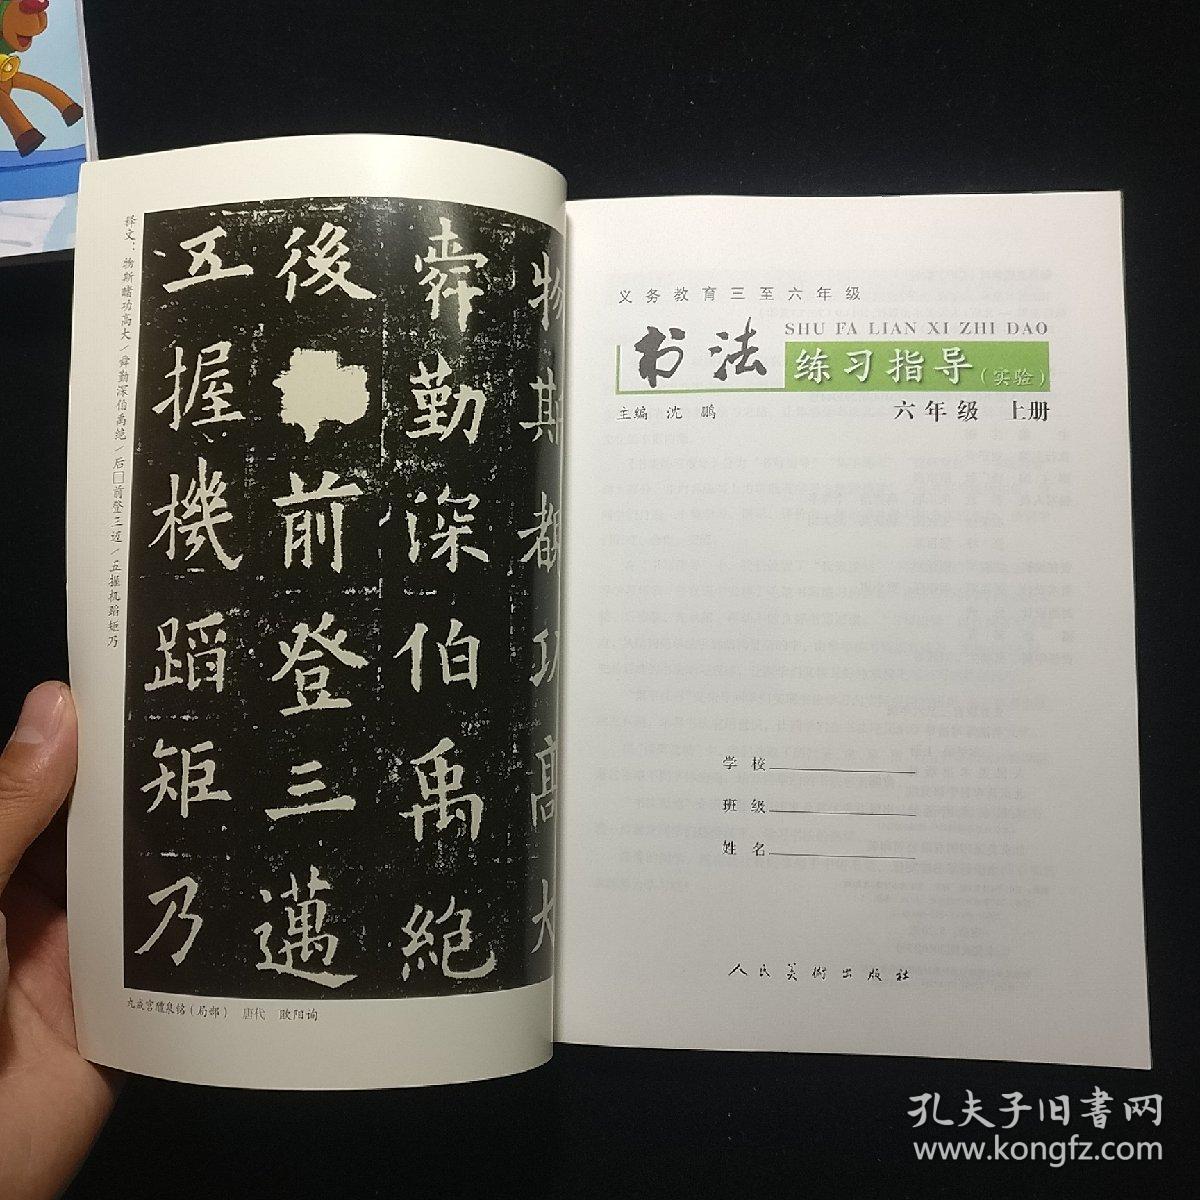 释文：物斯睹功高大／舜勤深伯禹绝／后□前登三迈／五握机蹈矩乃
物斯覩功高大
舜勤深伯禹絶
後前登三邁
五握機蹈矩乃
九成宫醴泉铭（局部） 唐代 欧阳询
义务教育三至六年级
书法
SHU FA LIAN XI ZHI DAO
练习指导（实验）
主编 沈鹏
六年级 上册
学校
班级
姓名
人民美術出版社
孔夫子旧書网
www.kongfz.com